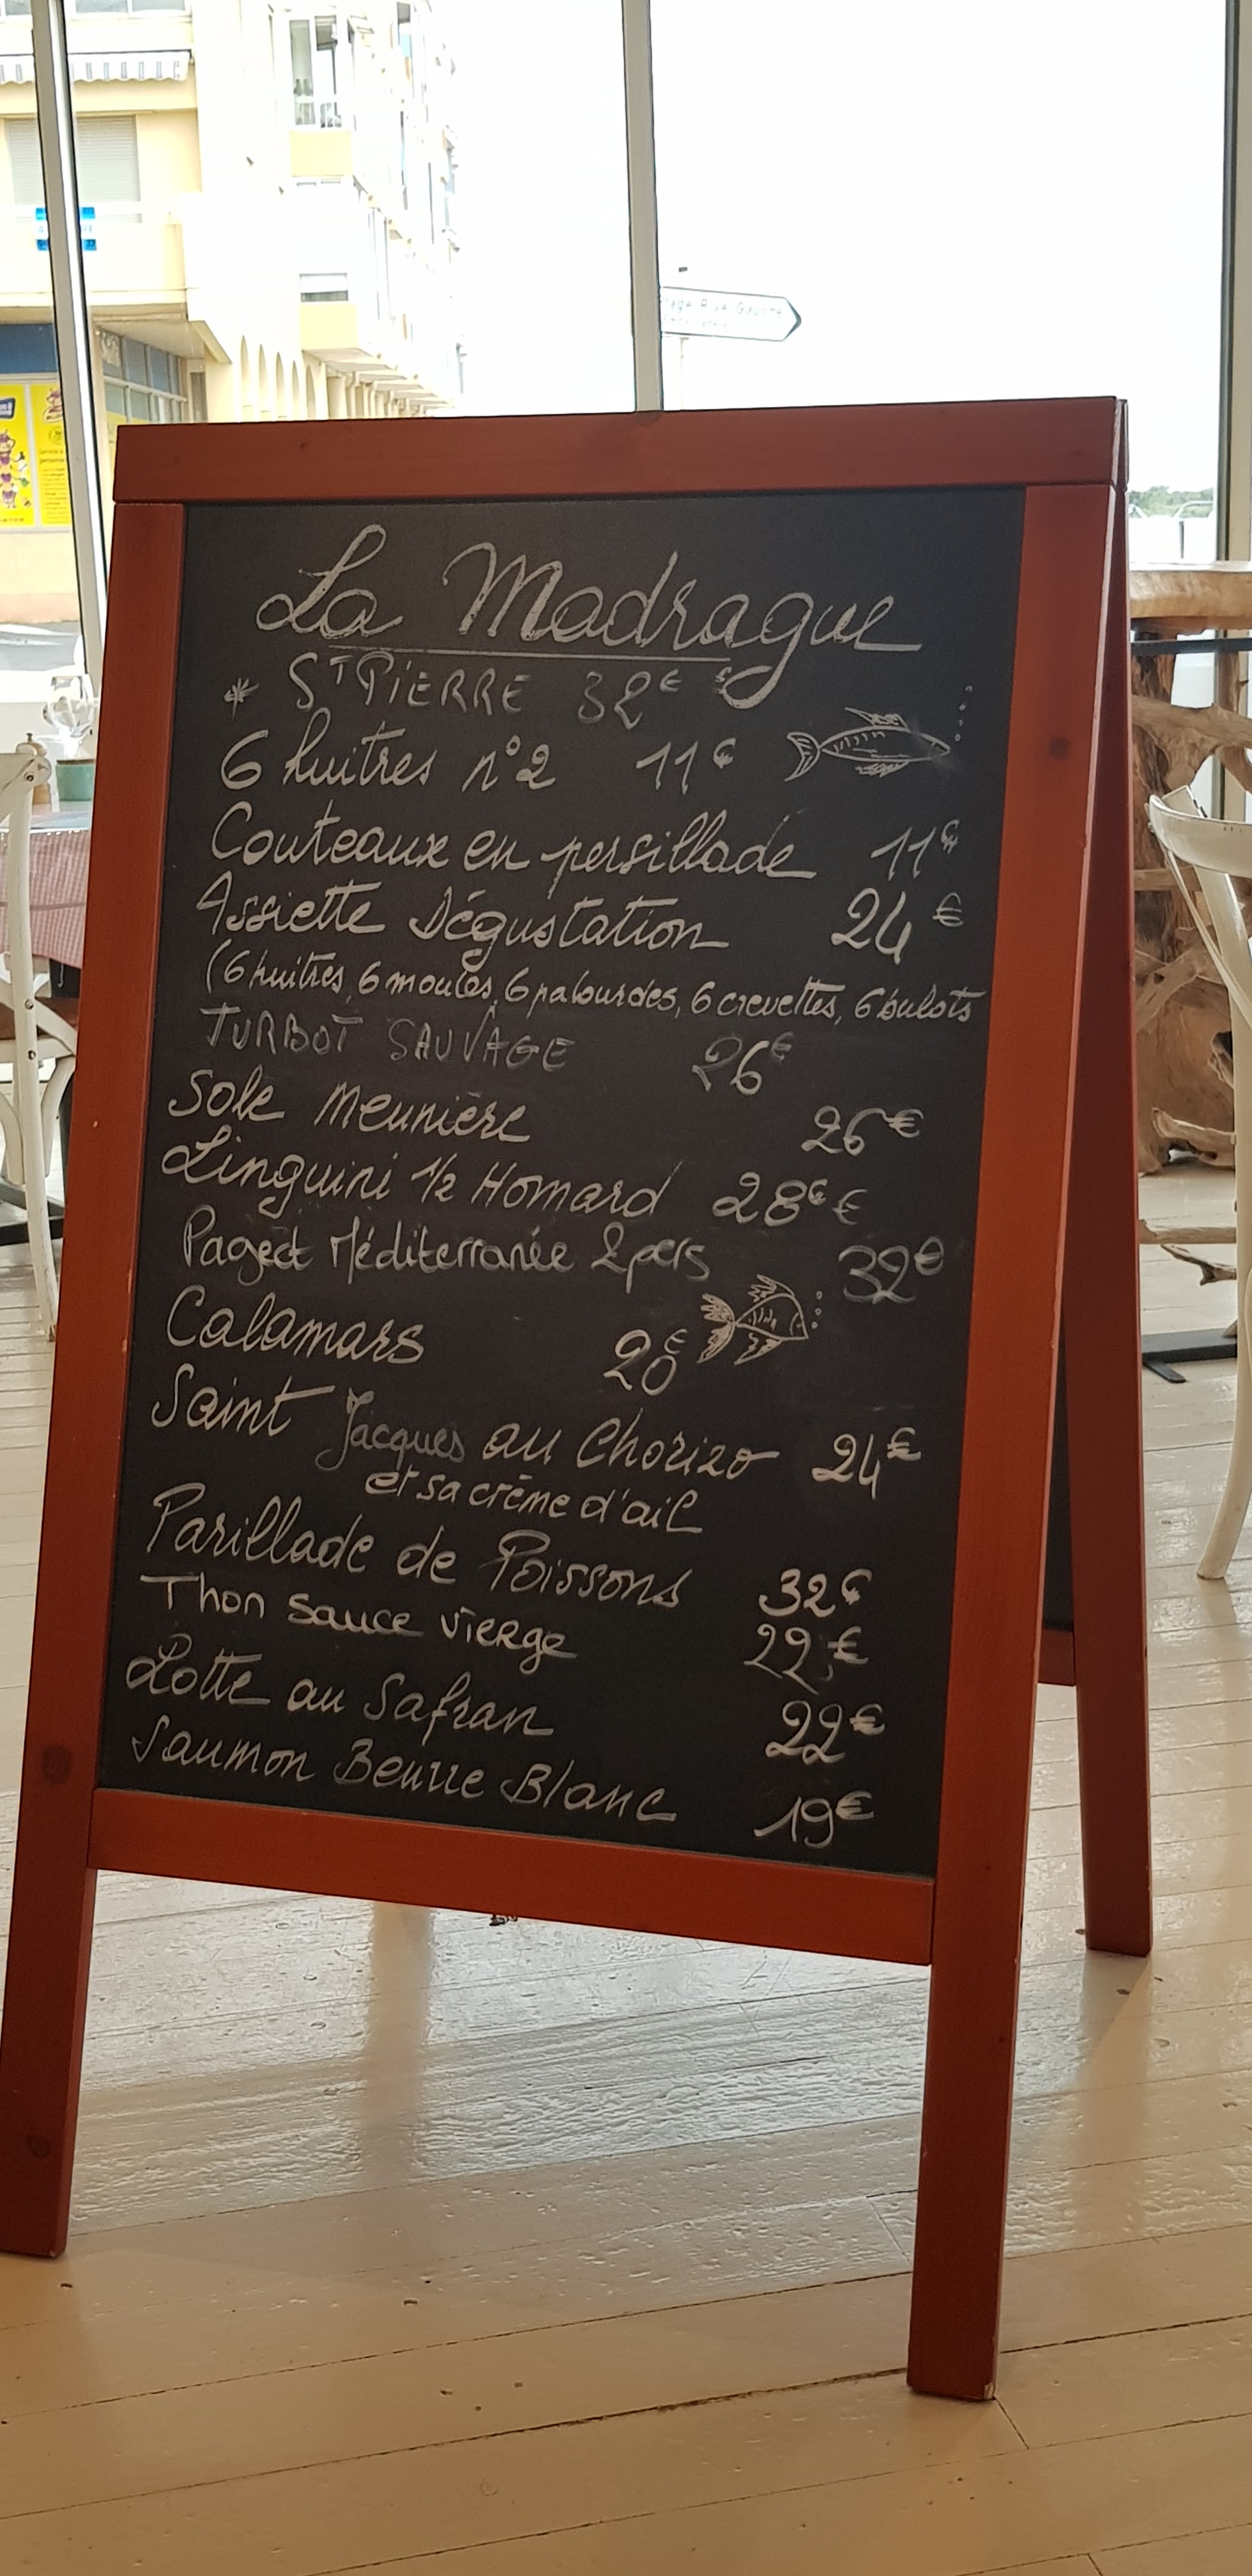 Plage Rive Gauche
La Madrague
* ST PIERRE 32€
6 huitres n°2 11€
Couteaux en persillade 11€
Assiette Dégustation 24€
(6 huitres, 6 moules, 6 palourdes, 6 crevettes, 6 bulots
TURBOT SAUVAGE 26€
Sole meunière 26€
Linguini 1/2 Homard 28€ €
Pageot Méditerranée 2 pers 32€
Calamars 20€
Saint Jacques au Chorizo 24€
et sa crème d'ail
Parillade de Poissons 32€
Thon sauce vierge 22€
Lotte au Safran 22€
Saumon Beurre Blanc 19€